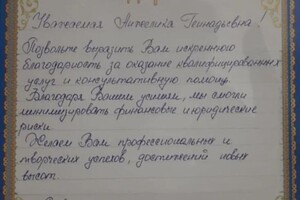 Уважаемая Анжелика Геннадьевна!
Позвольте выразить Вам искреннюю
благодарность за оказание квалифицированных
услуг и консультативную помощь.
Благодаря Вашим усилиям, мы смогли
минимизировать финансовые и юридические
риски.
Желаем Вам профессиональных и
творческих успехов, достижений новых
высот.